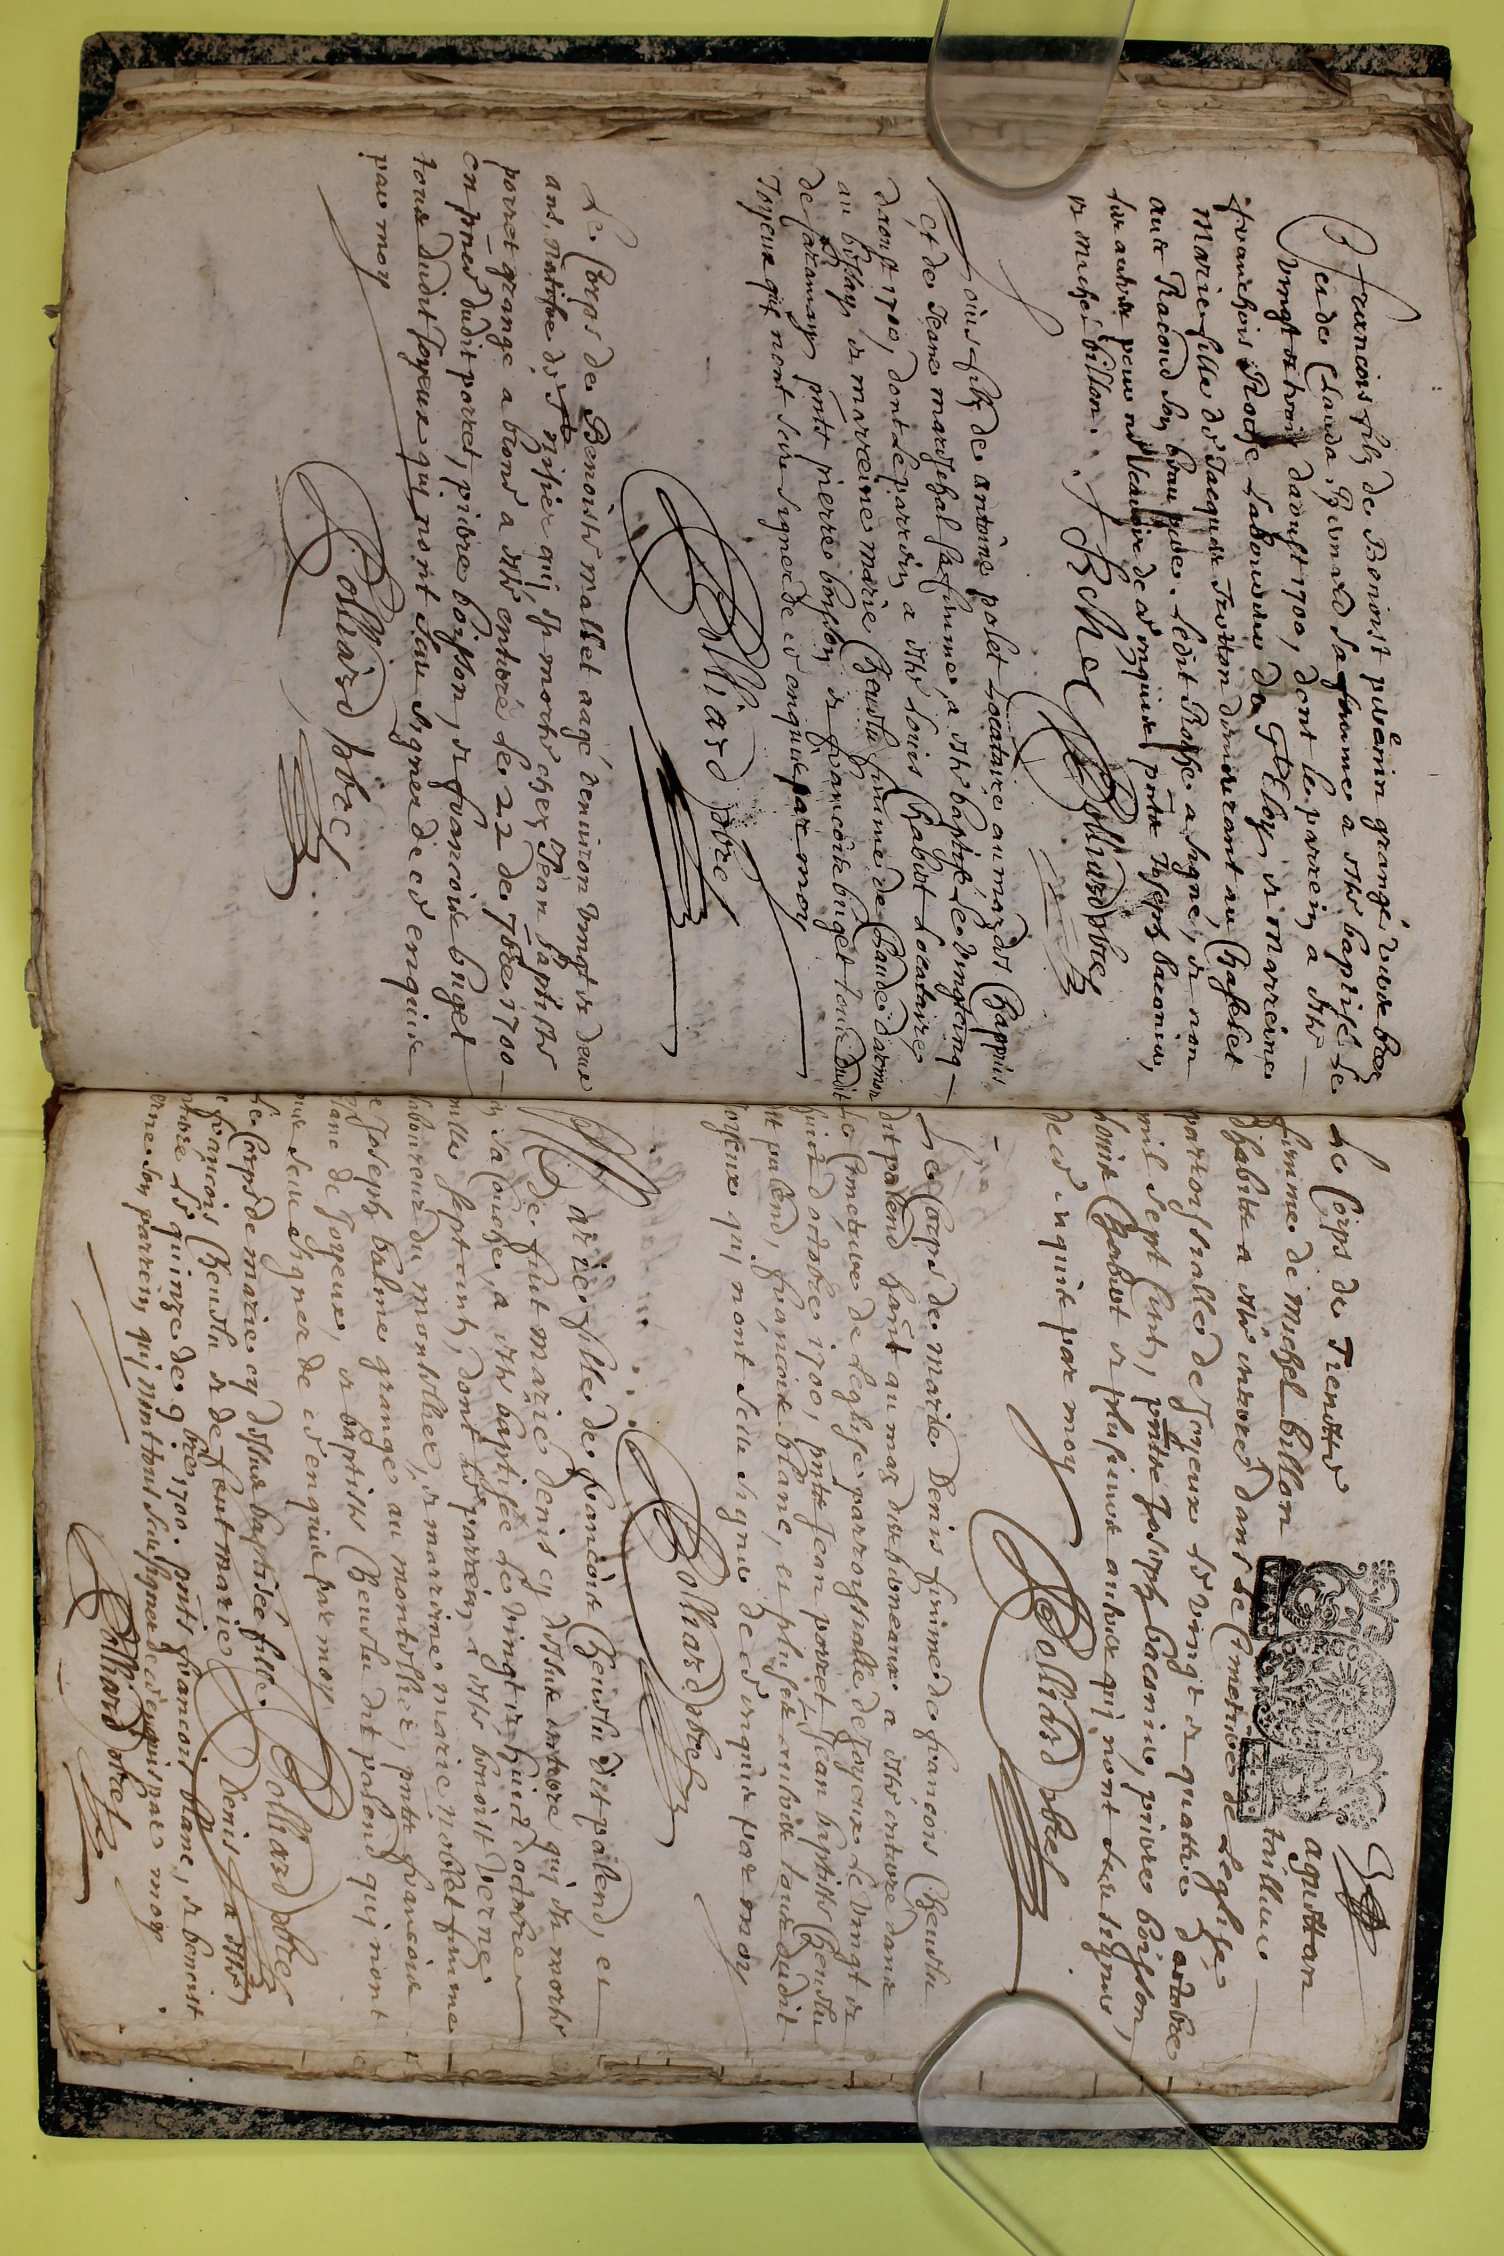 francois filz de Benoist grangé
et de Clauda Benard sa femme a esté baptisé le
vingt et trois daoust 1700, dont le parrein a esté
francois Roche Laboureur de St Eloy, et marreine
marie fille de Jacques demeurant au Chastel
aux Racoud son beau pere. ledit Roche a signé, et non
les autres pour ne scavoir de ce enquis pnts Joseph baconier,
et michel billon.
F Roche Rolliard pbre
Louis filz de antoine polet Locataire au maz des Chappuis
et de Jeane mareschal sa femme, a esté baptisé le vingtcinq
daoust 1700, dont le parrein a esté Louis Chabert Locataire
au bessay et marreine marie Cheudu femme de Claude
de pnts pierre boisson et francois buget tous dudit
Joyeux qui nont sceu signer de ce enquis par moy
Rolliard pbre
Le Corps de Benoiste mallet aagé denviron vingt et deux
ans, native de St nisier qui est morte chez Jean baptiste
porret grangé a biond a esté enterré le 22 de 7bre 1700
en pnce dudit porret, pierre boisson, et francois buget
tous dudit Joyeux qui nont sceu signer de ce enquis
par moy
Rolliard pbre
Le Corps de
femme de Michel billon tailleur
habitte a esté enterré dans le Cimetiere de Leglise
parroissialle de Joyeux le vingt et quattre octobre
mil sept cent, pnts Joseph baconier, pierre boisson,
Louis Chabert et plusieurs autres qui nont sceu signer
de ce enquis par moy
Rolliard pbre
Le Corps de marie Denis femme de françois Cheudu
dit palend hant au mas des a esté enterré dans
le Cimetiere de Leglise parroissialle de Joyeux le vingt et
huict octobre 1700, pnts Jean porret, Jean baptiste Cheudu
dit palend, francois blanc, et plusieurs autres tous dudit
Joyeux qui nont sceu signer de ce enquis par moy
Rolliard pbre
Marie fille de francois Cheudu dit palend, et
de feut marie denis cy dessus enterré qui est morte
en sa Couche, a esté baptisée le vingt et huict octobre
mille sept cent, dont le parrein a esté benoist Verne
Laboureur du montellier, et marreine marie femme
de Joseph balme grangé au montellier, pnts francois
blanc de Joyeux, et baptiste Cheudu dit palend qui nont
sceu signer de ce enquis par moy
Rolliard pbre
Le Corps de marie cy dessus baptisée fille
de françois Cheudu et de feut marie Denis a esté
enterré le quinze de 9bre 1700. pnts francois blanc, et benoist
Verne son parrein, qui nont sceu signer de ce enquis par moy
Rolliard pbre